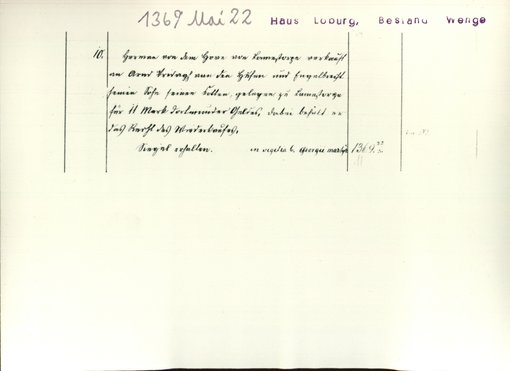 1369 Mai 22 Haus Loburg, Bestand Wenge
10. Herman von dem Hove von Lamestorpe verkauft
an Arnd Frydagh van den Husen und Engelbrecht
seinen Sohn seinen Kotten, gelegen zu Lamestorpe
für 11 Mark dortmunder Geldes, dabei behält er
das Recht des Wiederkaufes.
Siegel erhalten. in vigilia b. georgii martyris 1369